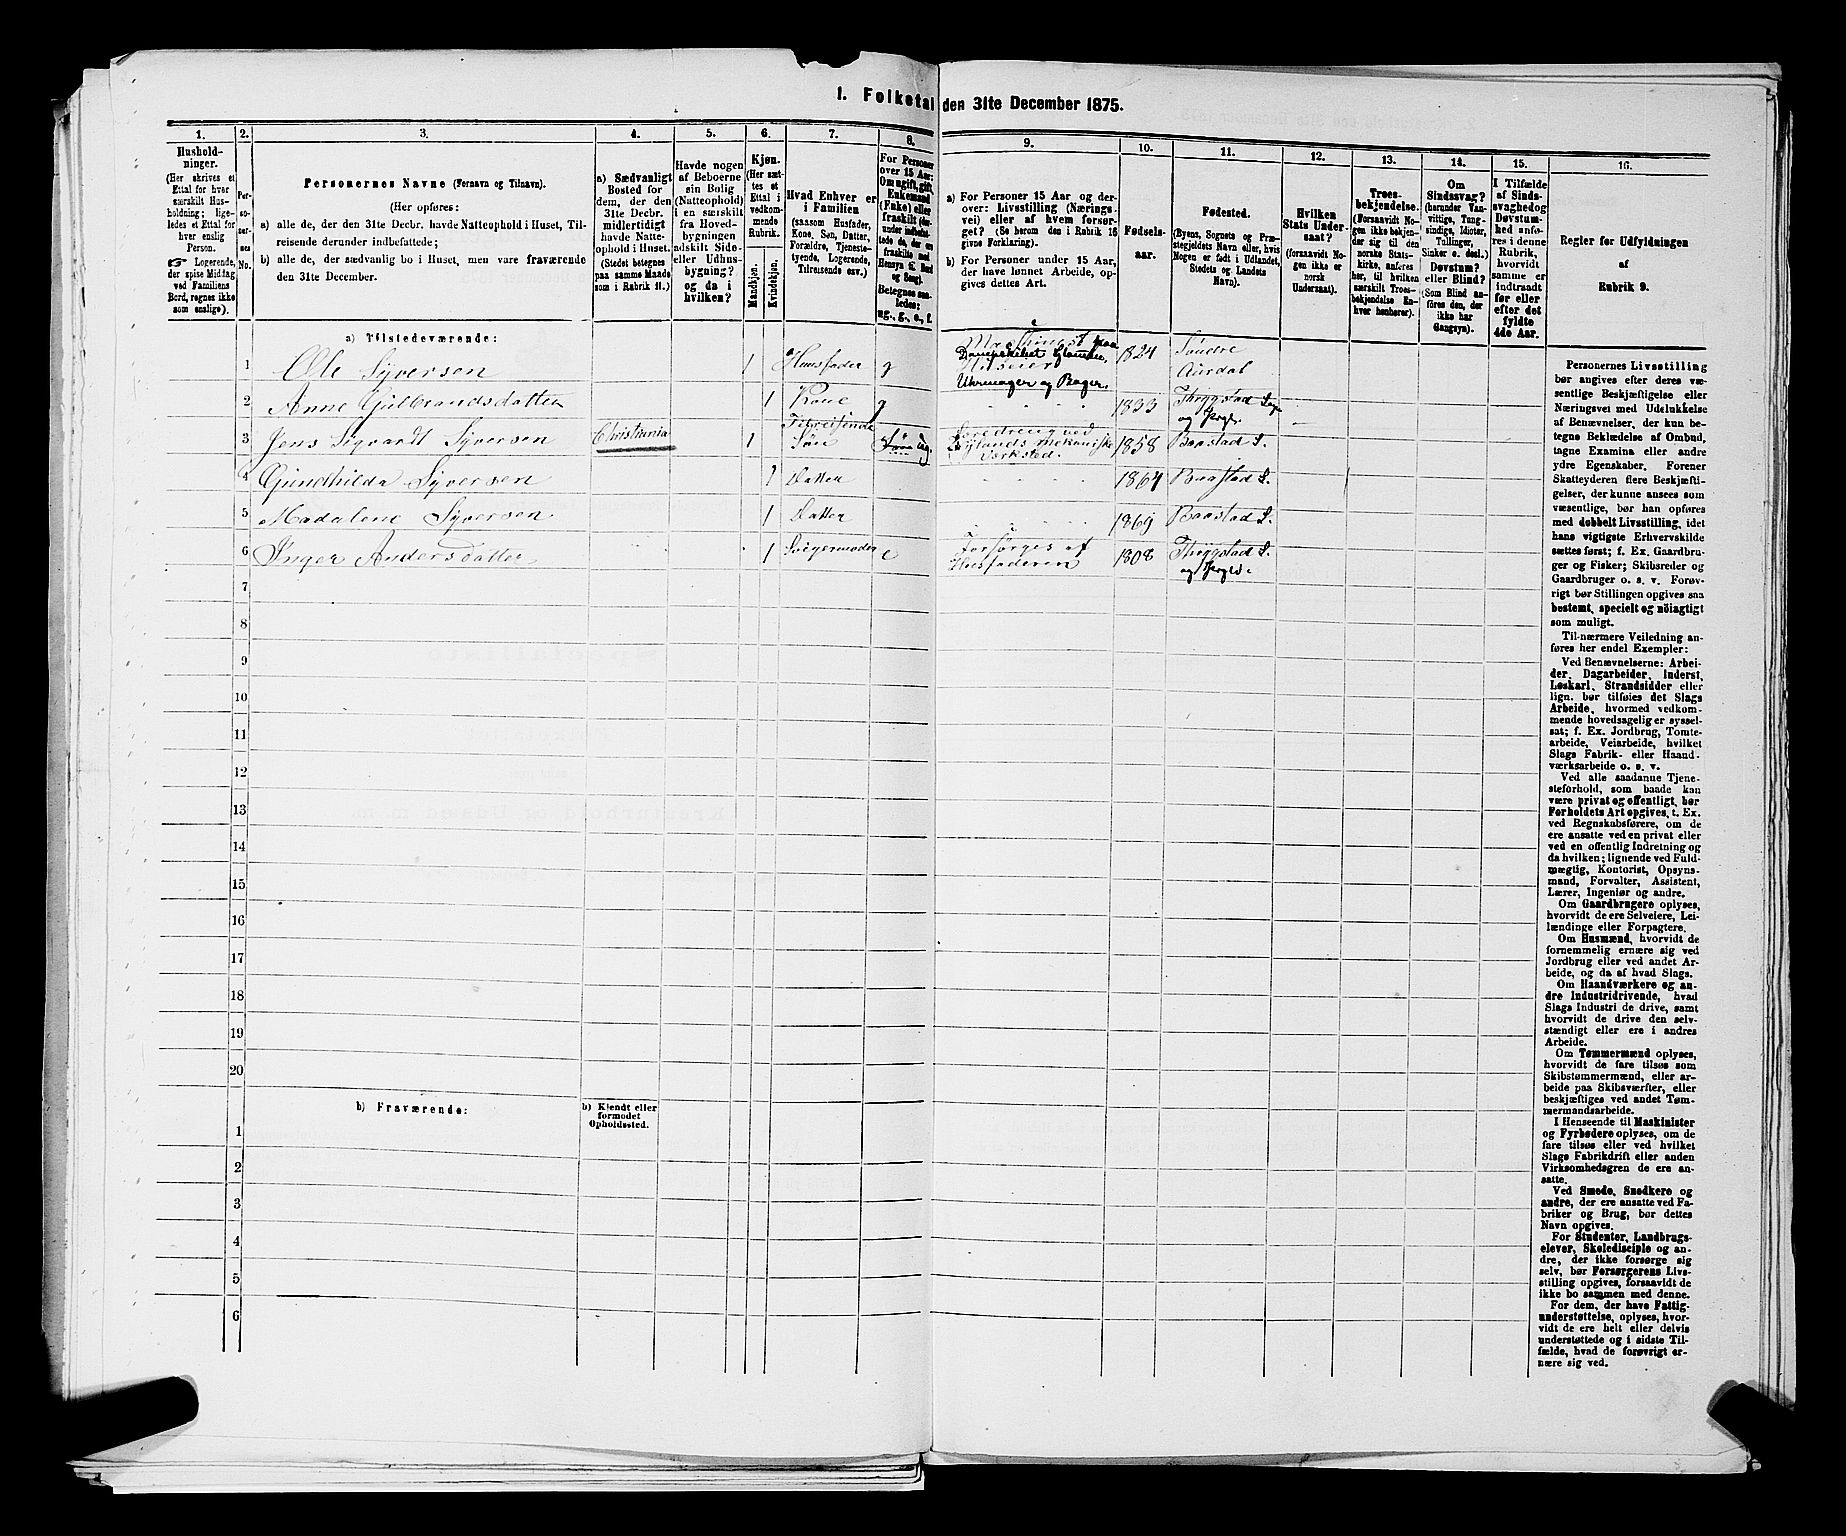 1. Folketal den 31te December 1875.
1.
Hushold-
ninger.
(Her skrives et
Ettal for hver
særskilt Hus-
holdning; lige-
ledes et Ettal
for hver
enslig
Person.
☞ Logerende,
der spise Middag
ved Familiens
Bord, regnes ikke
som enslige).
2.
Per-
so-
ner-
nes
No.
3.
Personernes Navne (Fornavn og Tilnavn).
(Her opføres:
a) alle de, der den 31te Decbr. havde Natteophold i Huset, Til-
reisende derunder indbefattede;
b) alle de, der sædvanlig bo i Huset, men vare fraværende
den 31te December.
4.
a) Sædvanligt
Bosted for
dem, der den
31te Decbr.
midlertidigt
havde Natte-
ophold i Huset.
(Stedet betegnes
paa samme Maade
som i Rubrik 11.)
5.
Havde nogen
af Beboerne
sin Bolig
(Natteophold)
i en særskilt
fra Hoved-
bygningen
adskilt Side-
eller Udhus-
bygning?
og da i
hvilken?
6.
Kjøn.
(Her sæt-
tes et
Ettal i
vedkom-
mende
Rubrik.
Mandkjøn.
Kvindekjøn.
7.
Hvad Enhver er
i Familien
(saasom Husfader,
Kone, Søn, Datter,
Forældre, Tjeneste-
tyende, Logerende,
Tilreisende osv.)
8.
For Personer
over 15 Aar:
Om ugift, gift,
Enkemand
(Enke) eller
fraskilt
Betegnes saa-
ledes:
ug., g., e., f.
9.
a) For Personer 15 Aar og der-
over: Livsstilling (Nærings-
vei) eller af hvem forsør-
get? (Se herom den i Rubrik 16
givne Forklaring).
b) For Personer under 15 Aar,
der have lønnet Arbeide, op-
gives dettes Art.
10.
Fødsels-
aar.
11.
Fødested.
(Byens, Sognets og Præ-
stegjeldets Navn eller, hvis
Nogen er født i Udlandet,
Stedets og Landets
Navn).
12.
Hvilken
Stats Under-
saat?
(forsaavidt No-
gen ikke er
norsk
Undersaat).
13.
Troes-
bekjendelse.
(Forsaavidt No-
gen ikke bekjen-
der sig til den
norske Stats-
kirke, anføres
her, til hvilken
særskilt Troes-
bekjendelse En-
hver henhører).
14.
Om
Sindssvag?
(herunder Van-
vittige, Tung-
sindige, Idioter,
Tullinger,
Sinker o. desl.)
Døvstum?
eller Blind?
(Som Blind an-
føres den, der
ikke har
Gangsyn).
15.
I Tilfælde
af Sinds-
svaghed og
Døvstum-
hed anfø-
res i denne
Rubrik,
hvorvidt
samme er
indtraadt
før eller
efter det
fyldte
4de Aar.
16.
Regler for Udfyldningen
af
Rubrik 9.
a) Tilstedeværende:
1 Ole Syversen 1 Husfader g Maskinist paa
Dampskibet Glommen,
Huseier
Uhrmager og Bager. 1824 Søndre
Aurdal
2 Anne Gulbrandsdatter 1 Kone g 1833 Thrygstad
3 Jens Sigvardt Syversen Christiania 1 Tilreisende
Søn ug. Læredreng ved
Nylands mekaniske
Værksted. 1858 Baastad S.
4 Gundhilda Syversen 1 Datter 1864 Baastad S.
5 Madalene Syversen 1 Datter 1869 Baastad S.
6 Inger Andersdatter 1 Svigermoder e Forsørges af
Husfaderen 1808 Thrygstad S.
7
8
9
10
11
12
13
14
15
16
17
18
19
20
b) Fraværende:
b) Kjendt eller
formodet
Opholdssted.
1
2
3
4
5
6
Personernes Livsstilling
bør angives efter deres væ-
sentlige Beskjæftigelse eller
Næringsvei med Udelukkelse
af Benævnelser, der kun be-
tegne Beklædelse af Ombud,
tagne Examina eller andre
ydre Egenskaber. Forener
Skatteyderen flere Beskjæfti-
gelser, der kunne ansees som
væsentlige, bør han opføres
med dobbelt Livsstilling, idet
hans vigtigste Erhvervskilde
sættes først; f. Ex. Gaardbru-
ger og Fisker; Skibsreder og
Gaardbruger o. s. v. Forøv-
rigt bør Stillingen opgives saa
bestemt, specielt og nøiagtigt
som muligt.
Til nærmere Veiledning an-
føres her endel Exempler:
Ved Benævnelserne: Arbei-
der, Dagarbeider, Inderst,
Løskarl, Strandsidder eller
lign. bør tilføies det Slags
Arbeide, hvormed vedkom-
mende hovedsagelig er syssel-
sat; f. Ex. Jordbrug, Tomte-
arbeide, Veiarbeide, hvilket
Slags Fabrik- eller Haand-
værksarbeide o. s. v.
Ved alle saadanne Tjene-
steforhold, som baade kan
være privat og offentligt, bør
Forholdets Art opgives, t. Ex.
ved Regnskabsførere, om de
ere ansatte ved en privat eller
ved en offentlig Indretning og
da hvilken; lignende ved Fuld-
mægtig, Kontorist, Opsyns-
mand, Forvalter, Assistent,
Lærer, Ingeniør og andre.
Om Gaardbrugere oplyses,
hvorvidt de ere Selveiere, Lei-
lændinge eller Forpagtere.
Om Husmænd, hvorvidt de
fornemmelig ernære sig ved
Jordbrug eller ved andet Ar-
beide, og da af hvad Slags.
Om Haandværkere og an-
dre Industridrivende, hvad
Slags Industri de drive, samt
hvorvidt de drive den selv-
stændigt eller ere i andres
Arbeide.
Om Tømmermænd oplyses,
hvorvidt de fare tilsøs som
Skibstømmermænd, eller ar-
beide paa Skibsværfter, eller
beskjæftiges ved andet Tøm-
mermandsarbeide.
I Henseende til Maskinister
og Fyrbødere oplyses, om de
fare tilsøs eller ved hvilket
Slags Fabrikdrift eller anden
Virksomhedsgren de ere an-
satte.
Ved Smede, Snedkere og
andre, der ere ansatte ved Fa-
briker og Brug, bør dettes
Navn opgives.
For Studenter, Landbrugs-
elever, Skoledisciple og an-
dre, der ikke forsørge sig
selv, bør Forsørgerens Livs-
stilling opgives, forsaavidt de
ikke bo sammen med denne.
For dem, der have Fattig-
understøttelse, oplyses, hvor-
vidt de ere helt eller delvis
understøttede og i sidste Til-
fælde, hvad de forøvrigt er-
nære sig ved.